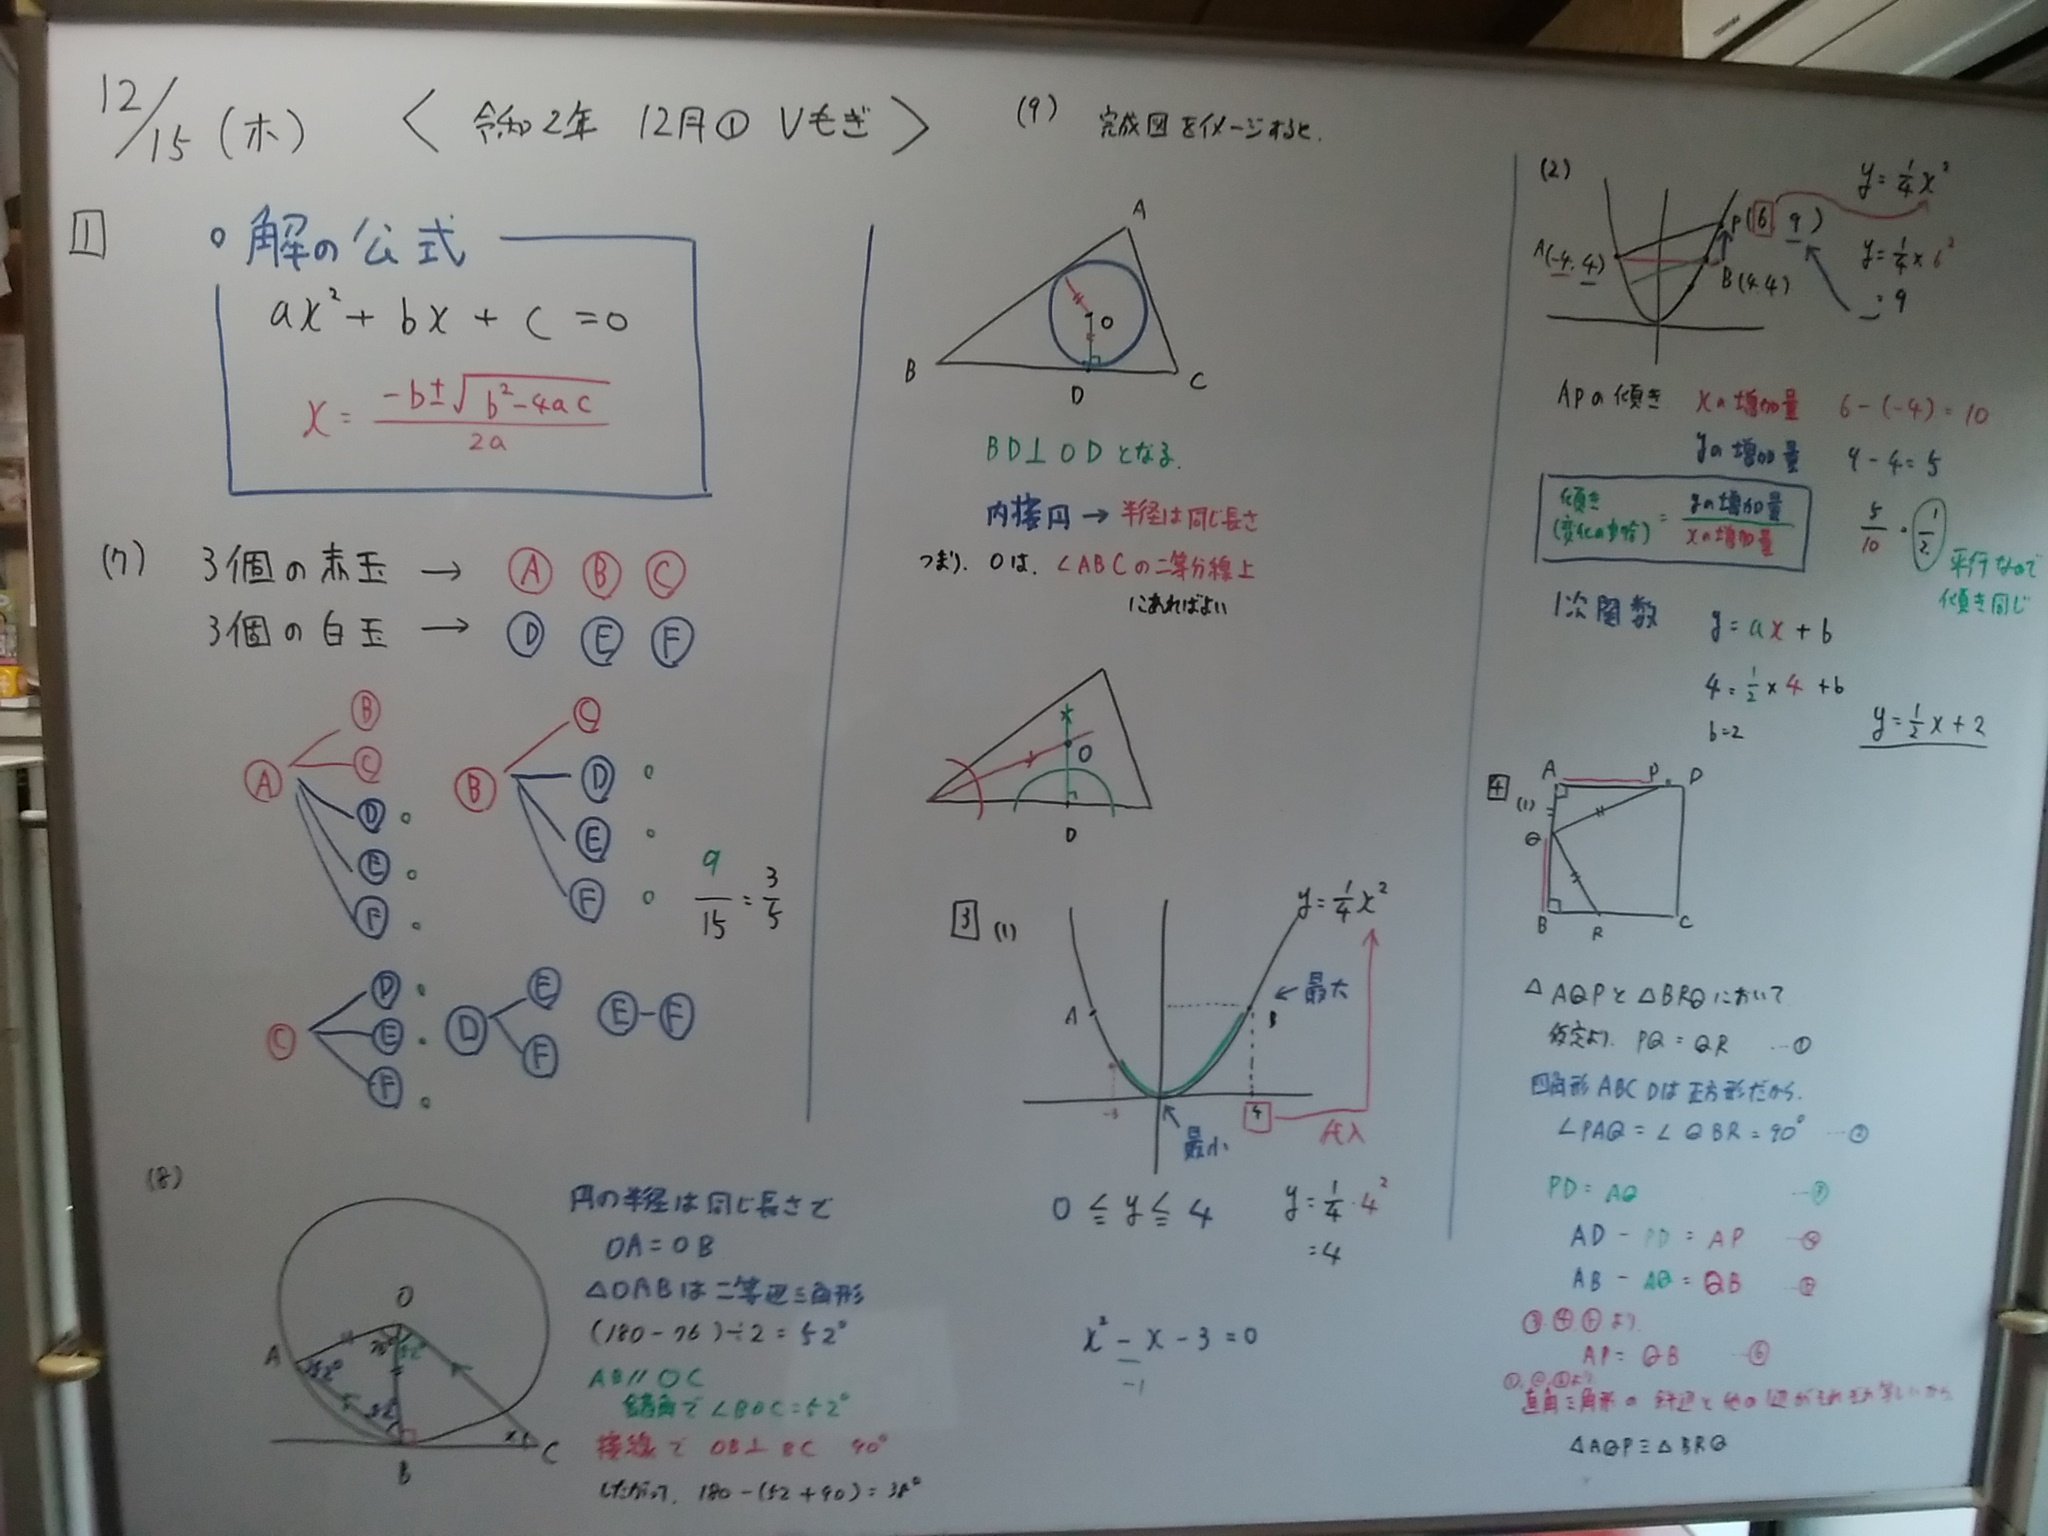 12/15 (木) 〈 令和2年 12月① Vもぎ 〉
1
○ 解の公式
ax² + bx + c = 0
x = (-b±√(b²-4ac))/2a
(7) 3個の赤玉 → A B C
3個の白玉 → D E F
A
B
C
D ○
E ○
F ○
B
C
D ○
E ○
F ○
9/15 = 3/5
C
D ○
E ○
F ○
D
E
F
E-F
(8)
O
A
B
C
76°
52°
52°
52°
x
円の半径は同じ長さで
OA=OB
△OABは二等辺三角形
(180-76)÷2=52°
AB//OC
錯角で∠BOC=52°
接線で OB⊥BC 90°
したがって, 180-(52+90)=38°
(9) 完成図をイメージすると.
A
O
B
D
C
BD⊥ODとなる.
内接円 → 半径は同じ長さ
つまり. Oは. ∠ABCの二等分線上
にあればよい
O
D
3 (1)
y=1/4x²
A
B
← 最大
-3
4
代入
最小
0 ≦ y ≦ 4
y=1/4・4²
=4
x² - x - 3 = 0
-1
(2)
y=1/4x²
P(6 9)
A(-4.4)
B(4.4)
y=1/4×6²
=9
APの傾き xの増加量 6-(-4)=10
yの増加量 9-4=5
傾き(変化の割合) = yの増加量/xの増加量
5/10 = 1/2
平行なので
傾き同じ
1次関数 y=ax+b
4=1/2×4+b
b=2
y=1/2x+2
4 (1)
A
P
D
Q
B
R
C
△AQPと△BRQにおいて
仮定より. PQ=QR …①
四角形ABCDは正方形だから.
∠PAQ=∠QBR=90° …②
PD=AQ …③
AD-PD=AP
AB-AQ=QB
より.
AP=QB …⑥
より
直角三角形の斜辺と他の1辺がそれぞれ等しいから
△AQP≡△BRQ